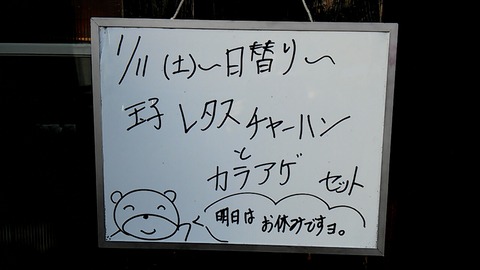 1/11(土)～日替り～
玉子レタスチャーハン
と
カラアゲ セット
明日はお休みですヨ。